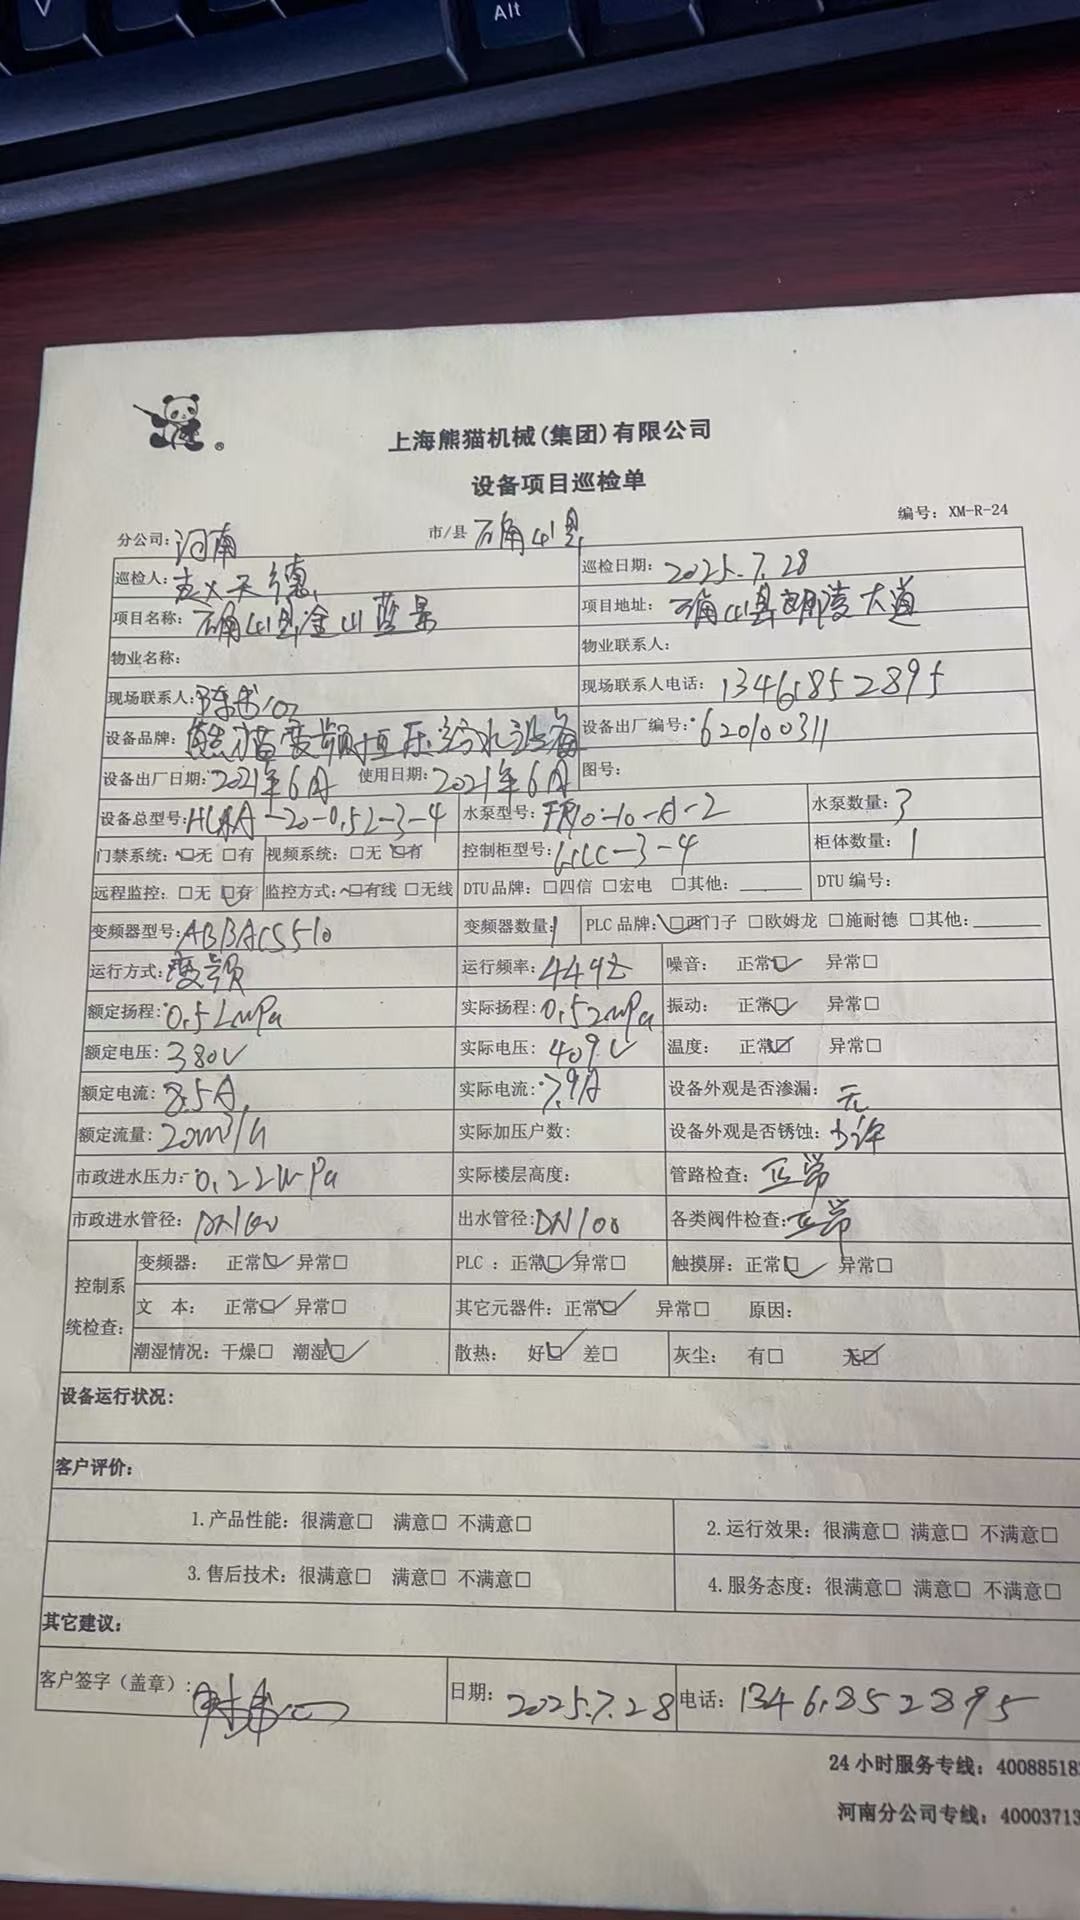 Alt
上海熊猫机械(集团)有限公司
设备项目巡检单
编号：XM-R-24
分公司：河南 市/县 确山县
巡检人： 巡检日期：2025.7.28
项目名称：确山县金山蓝景 项目地址：确山县朗陵大道
物业名称： 物业联系人：
现场联系人： 现场联系人电话：13461852895
设备品牌：熊猫变频恒压给水设备 设备出厂编号：620100311
设备出厂日期：2021年6月 使用日期：2021年6月 图号：
设备总型号： -20-0.52-3-4 水泵型号： 水泵数量：3
门禁系统：☑无 □有 视频系统：□无 ☑有 控制柜型号： -3-4 柜体数量：1
远程监控：□无 ☑有 监控方式：☑有线 □无线 DTU品牌：□四信 □宏电 □其他： DTU 编号：
变频器型号：ABBACS510 变频器数量：1 PLC 品牌：☑西门子 □欧姆龙 □施耐德 □其他：
运行方式：变频 运行频率：44Hz 噪音： 正常☑ 异常□
额定扬程：0.52mPa 实际扬程：0.52mPa 振动： 正常☑ 异常□
额定电压：380V 实际电压：409V 温度： 正常☑ 异常□
额定电流：8.5A 实际电流：7.9A 设备外观是否渗漏：无
额定流量：20m³/h 实际加压户数： 设备外观是否锈蚀：少许
市政进水压力：0.22mPa 实际楼层高度： 管路检查：正常
市政进水管径：DN100 出水管径：DN100 各类阀件检查：正常
控制系统检查： 变频器： 正常☑ 异常□ PLC ：正常☑ 异常□ 触摸屏：正常☑ 异常□
文 本： 正常☑ 异常□ 其它元器件：正常☑ 异常□ 原因：
潮湿情况：干燥□ 潮湿☑ 散热： 好☑ 差□ 灰尘： 有□ 无☑
设备运行状况：
客户评价：
1.产品性能：很满意□ 满意□ 不满意□ 2.运行效果：很满意□ 满意□ 不满意□
3.售后技术：很满意□ 满意□ 不满意□ 4.服务态度：很满意□ 满意□ 不满意□
其它建议：
客户签字（盖章）： 日期：2025.7.28 电话：13461852895
24 小时服务专线：40088518
河南分公司专线：40003713